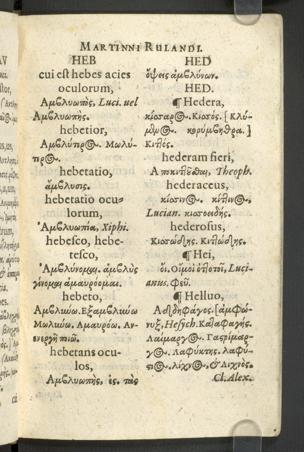 MARTINNI RULANDI.
HEB
cui est hebes acies
oculorum,
Ἀμβλυωπὸς, Luci. uel
Ἀμβλυωπής.
hebetior,
Ἀμβλύτερος.
hebetatio,
ἄμβλυσις.
hebetatio ocu-
lorum,
Ἀμβλυωπία, Xiphi.
hebesco, hebe-
tesco,
Ἀμβλύνομαι. ἀμβλὺς
γίνομαι ἀμαυρόομαι.
hebeto,
Ἀμβλύνω.
Μωλύω. Ἀμαυρόω. Ἀν-
ενεργῆ ποιῶ.
hebetans ocu-
los,
Ἀμβλυωπής.
HED
ὄψεις ἀμβλύνων.
HED.
¶ Hedera,
Κισσός.
Κιττός.
hederam fieri,
Theoph.
hederaceus,
κίσσινος. κίττινος.
Lucian. κισσοειδής.
hederosus,
Κισσώδης. Κιττώδης.
¶ Hei,
οἴ. Οἴμοι Luci-
anus. Φεῦ.
¶ Helluo,
Ἀδηφάγος.
Hesych. Καταφαγᾶς.
Λαίμαργος. Γαστρίμαρ-
γος. Λαφύκτης.
λίχνος
Cl. Alex.